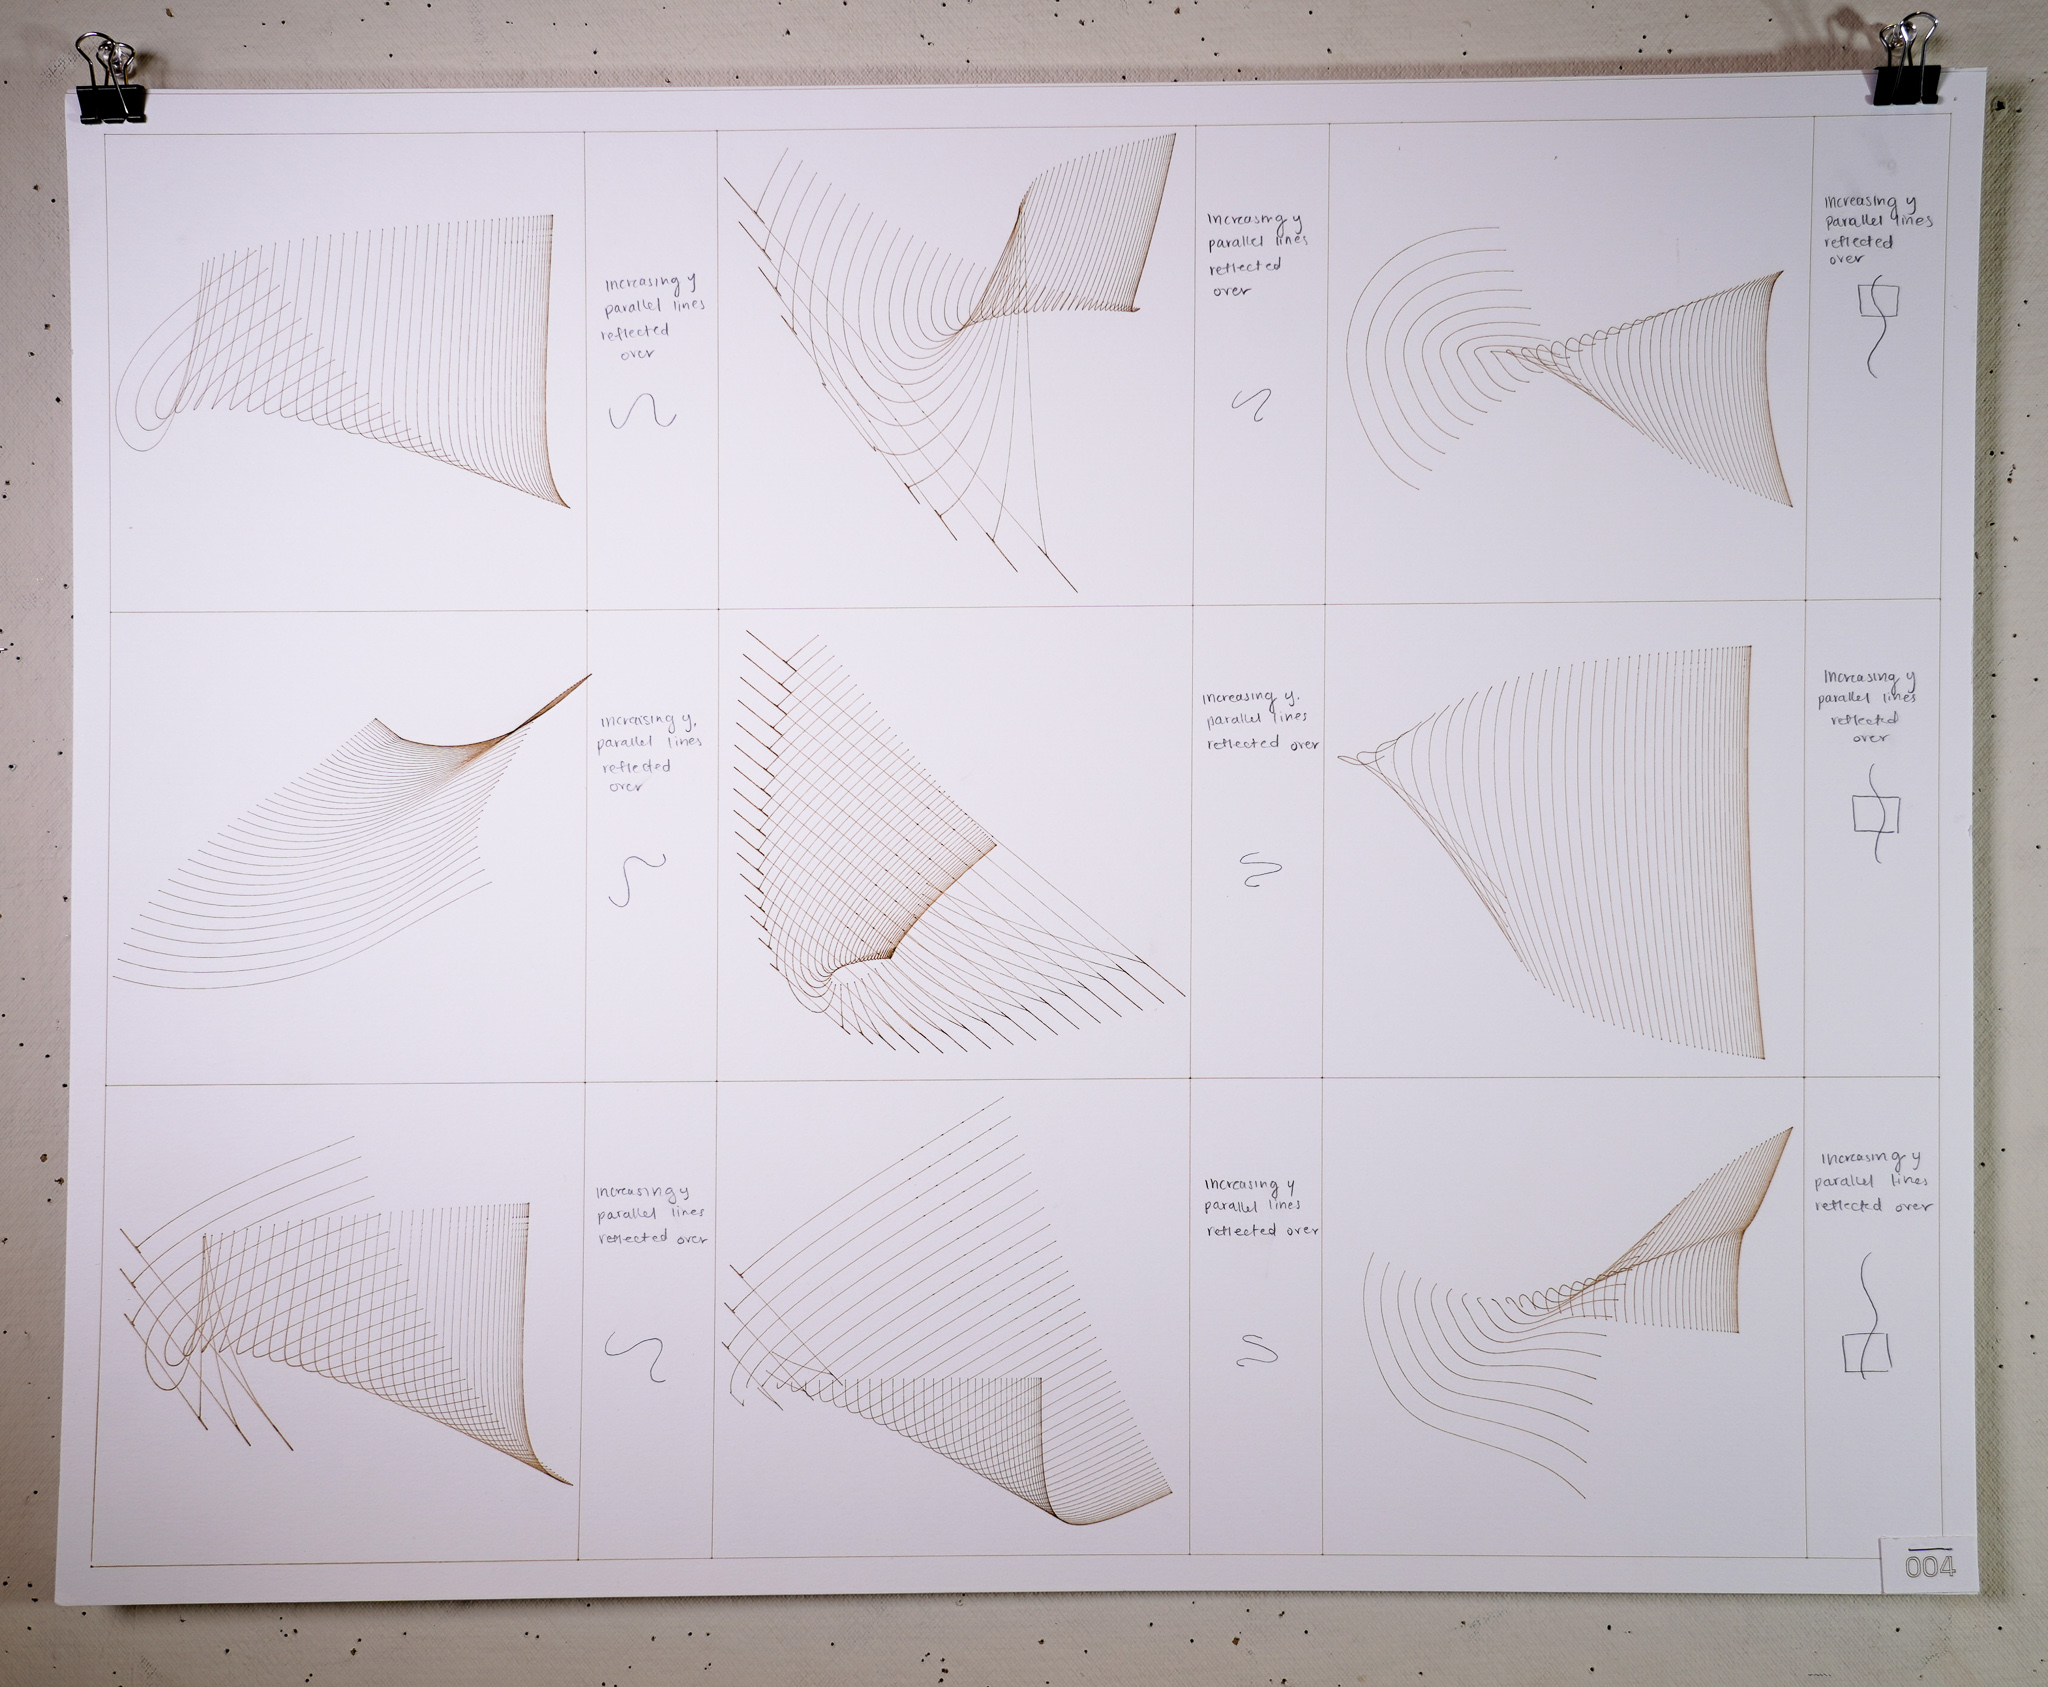 increasing y
parallel lines
reflected
over
increasing y
parallel lines
reflected
over
increasing y
parallel lines
reflected
over
increasing y,
parallel lines
reflected
over
increasing y,
parallel lines
reflected over
increasing y
parallel lines
reflected
over
increasing y
parallel lines
reflected over
increasing y
parallel lines
reflected over
increasing y
parallel lines
reflected over
004